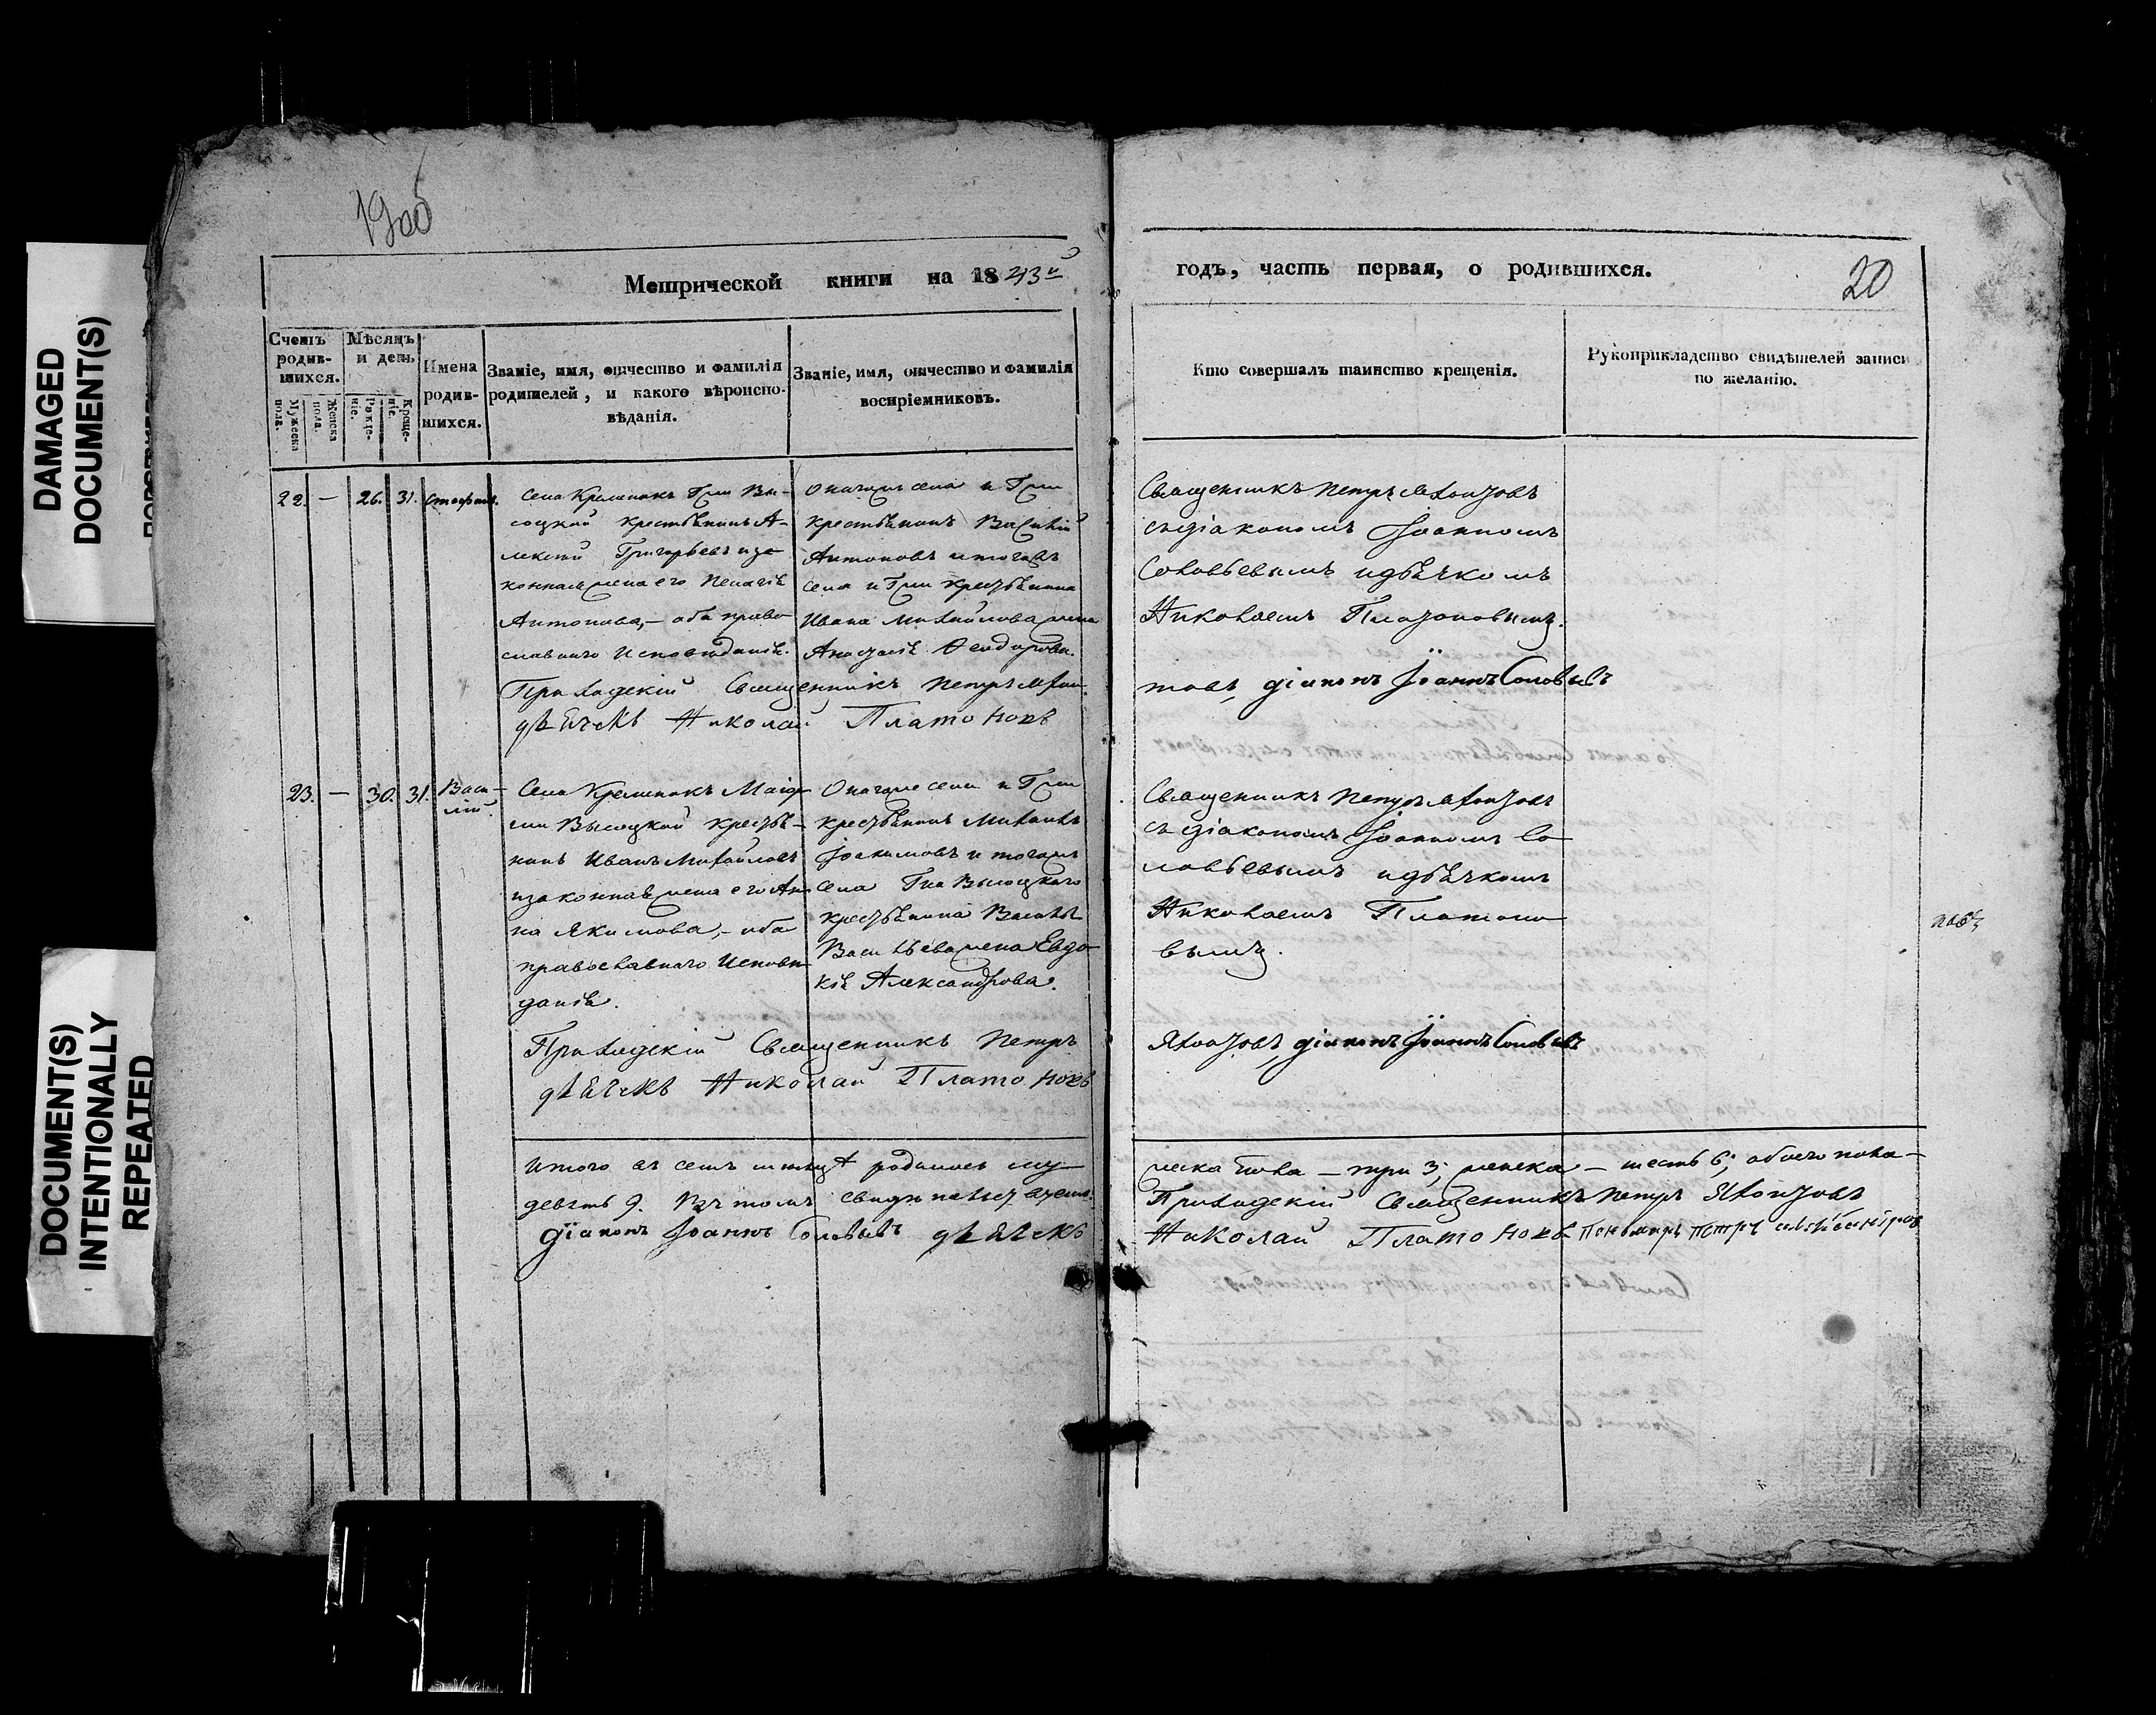 DAMAGED
DOCUMENT(S)
DOCUMENT(S)
INTENTIONALLY
REPEATED
19об
Метрической книги на 1843й
годъ, часть первая, о родившихся.
20
Счетъ родив-шихся.
Мужеска пола.
Женска пола.
Мѣсяцъ и день
Рожде-ніе.
Креще-ніе.
Имена родив-шихся.
Званіе, имя, отчество и фамилія
родителей, и какого вѣроиспо-
вѣданія.
Званіе, имя, отчество и фамилія
воспріемниковъ.
Кто совершалъ таинство крещенія.
Рукоприкладство свидѣтелей записи
по желанію.
22. — 26. 31. Стефанъ.
Села Кременокъ Гжи Вы-
соцкой крестьянинъ А-
лексѣй Григорьевъ и за-
конная жена его Пелагія
Антонова, – оба право-
славнаго исповѣданія.
Означен. села и Гжи
крестьянинъ Василій
Антоновъ и тогожъ
села и Гжи крестьянина
Ивана Михайлова жена
Анастасія Ѳеодорова.
Священникъ Петръ
съ діакономъ Іоанномъ
Соловьевымъ и дьячкомъ
Николаемъ Платоновымъ.
Приходскій Священникъ Петръ
діаконъ Іоаннъ Соловьевъ
дьячекъ Николай Платоновъ
23. — 30. 31. Васи-
лій.
Села Кременокъ
Высоцкой крестья-
нинъ Иванъ Михайловъ
и законная жена его Ан-
на Якимова, – оба
православнаго исповѣ-
данія.
села и Гжи
крестьянинъ Михаилъ
Іоакимовъ и тогожъ
села Гжи Высоцкаго
крестьянина Василія
Васильева жена Евдо-
кія Александрова.
Священникъ Петръ
съ діакономъ Іоанномъ Со-
ловьевымъ и дьячкомъ
Николаемъ Платоно-
вымъ.
Приходскій Священникъ Петръ
діаконъ Іоаннъ Соловьевъ
дьячекъ Николай Платоновъ
Итого въ семъ мѣсяцѣ родилось му-
жеска пола – три 3; женска – шесть 6; обоего пола –
девять 9. Въ томъ свидѣтельствуемъ:
Приходскій Священникъ Петръ
діаконъ Іоаннъ Соловьевъ дьячекъ
Николай Платоновъ Пономарь Петръ